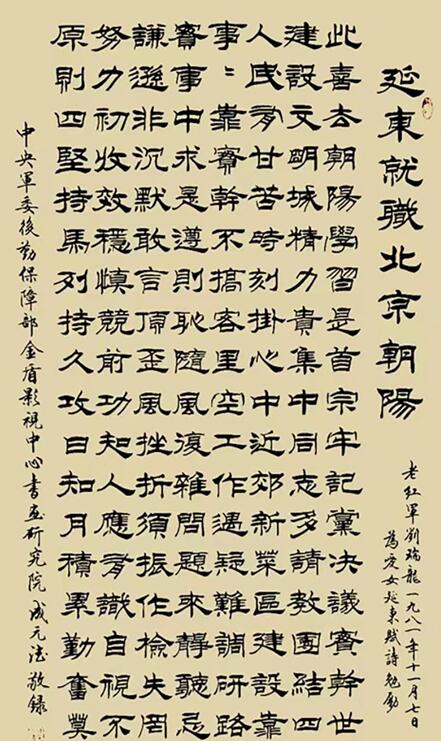 延東就職北京朝陽
老紅軍劉瑞龍一九八一年十一月七日
為愛女延東賦詩勉勵
此喜去朝陽學習是首宗牢記黨决議實幹世
建設文明城精力貴集中同志多請教團結四
人民有甘苦時刻掛心中近郊新菜區建設靠
事〻靠實幹不搞客里空工作遇疑難調研路
實事中求是遵則恥隨風復雜問題來靜聽忌
謙遜非沉默敢言頂歪風挫折須振作檢失罔
努力初收效穩慎競前功知人應有識自視不
原則四堅持馬列持久攻日知月積累勤奮莫
中央軍委後勤保障部金盾影視中心書画研究院 成元法敬錄